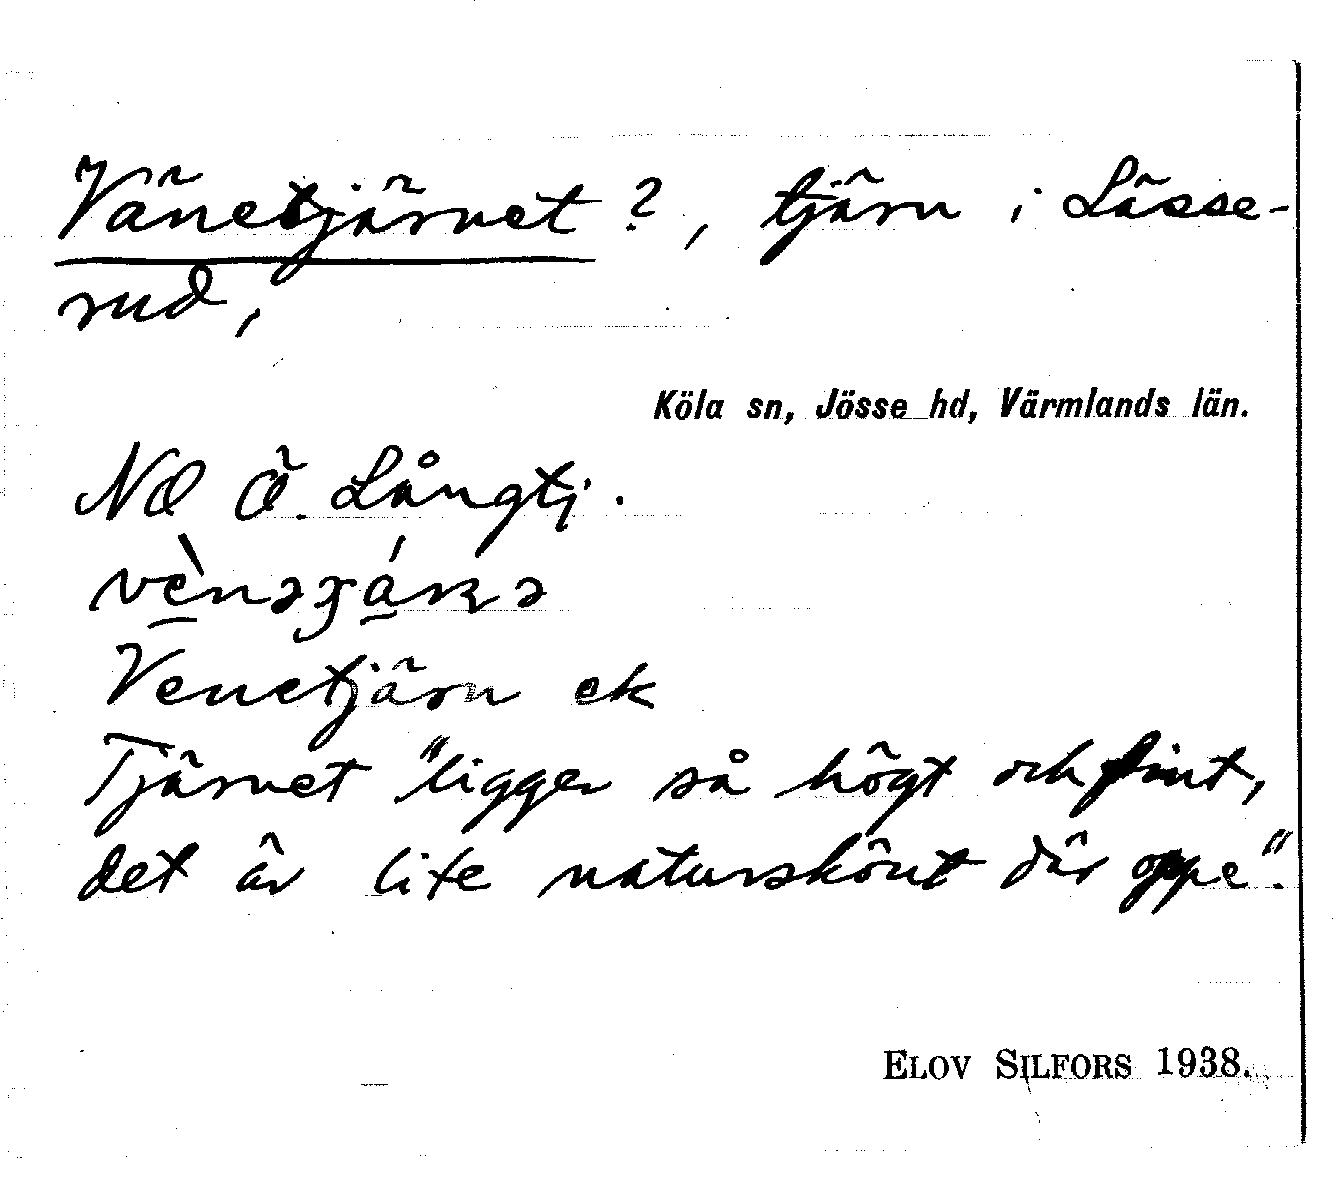 Vänetjärnet ?, tjärn i Lässe-
rud,
Köla sn, Jösse hd, Värmlands län.
NO Ö. Långtj.
Venetjärn ek
Tjärnet "ligger så högt och fint,
det är lite naturskönt där oppe".
ELOV SILFORS 1938.